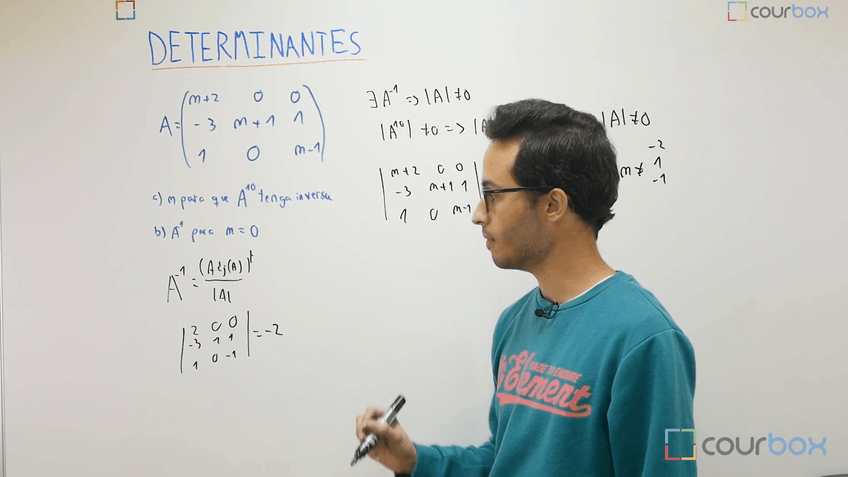 courbox
DETERMINANTES
A = ( m+2 0 0
-3 m+1 1
1 0 m-1 )
a) m para que A^10 tenga inversa
b) A^-1 para m = 0
A^-1 = (Adj(A))^t / |A|
| 2 0 0
-3 1 1
1 0 -1 | = -2
∃ A^-1 => |A| ≠ 0
|A^10| ≠ 0 => |A
|A| ≠ 0
| m+2 0 0
-3 m+1 1
1 0 m-1
m ≠ -2
1
-1
Element
courbox